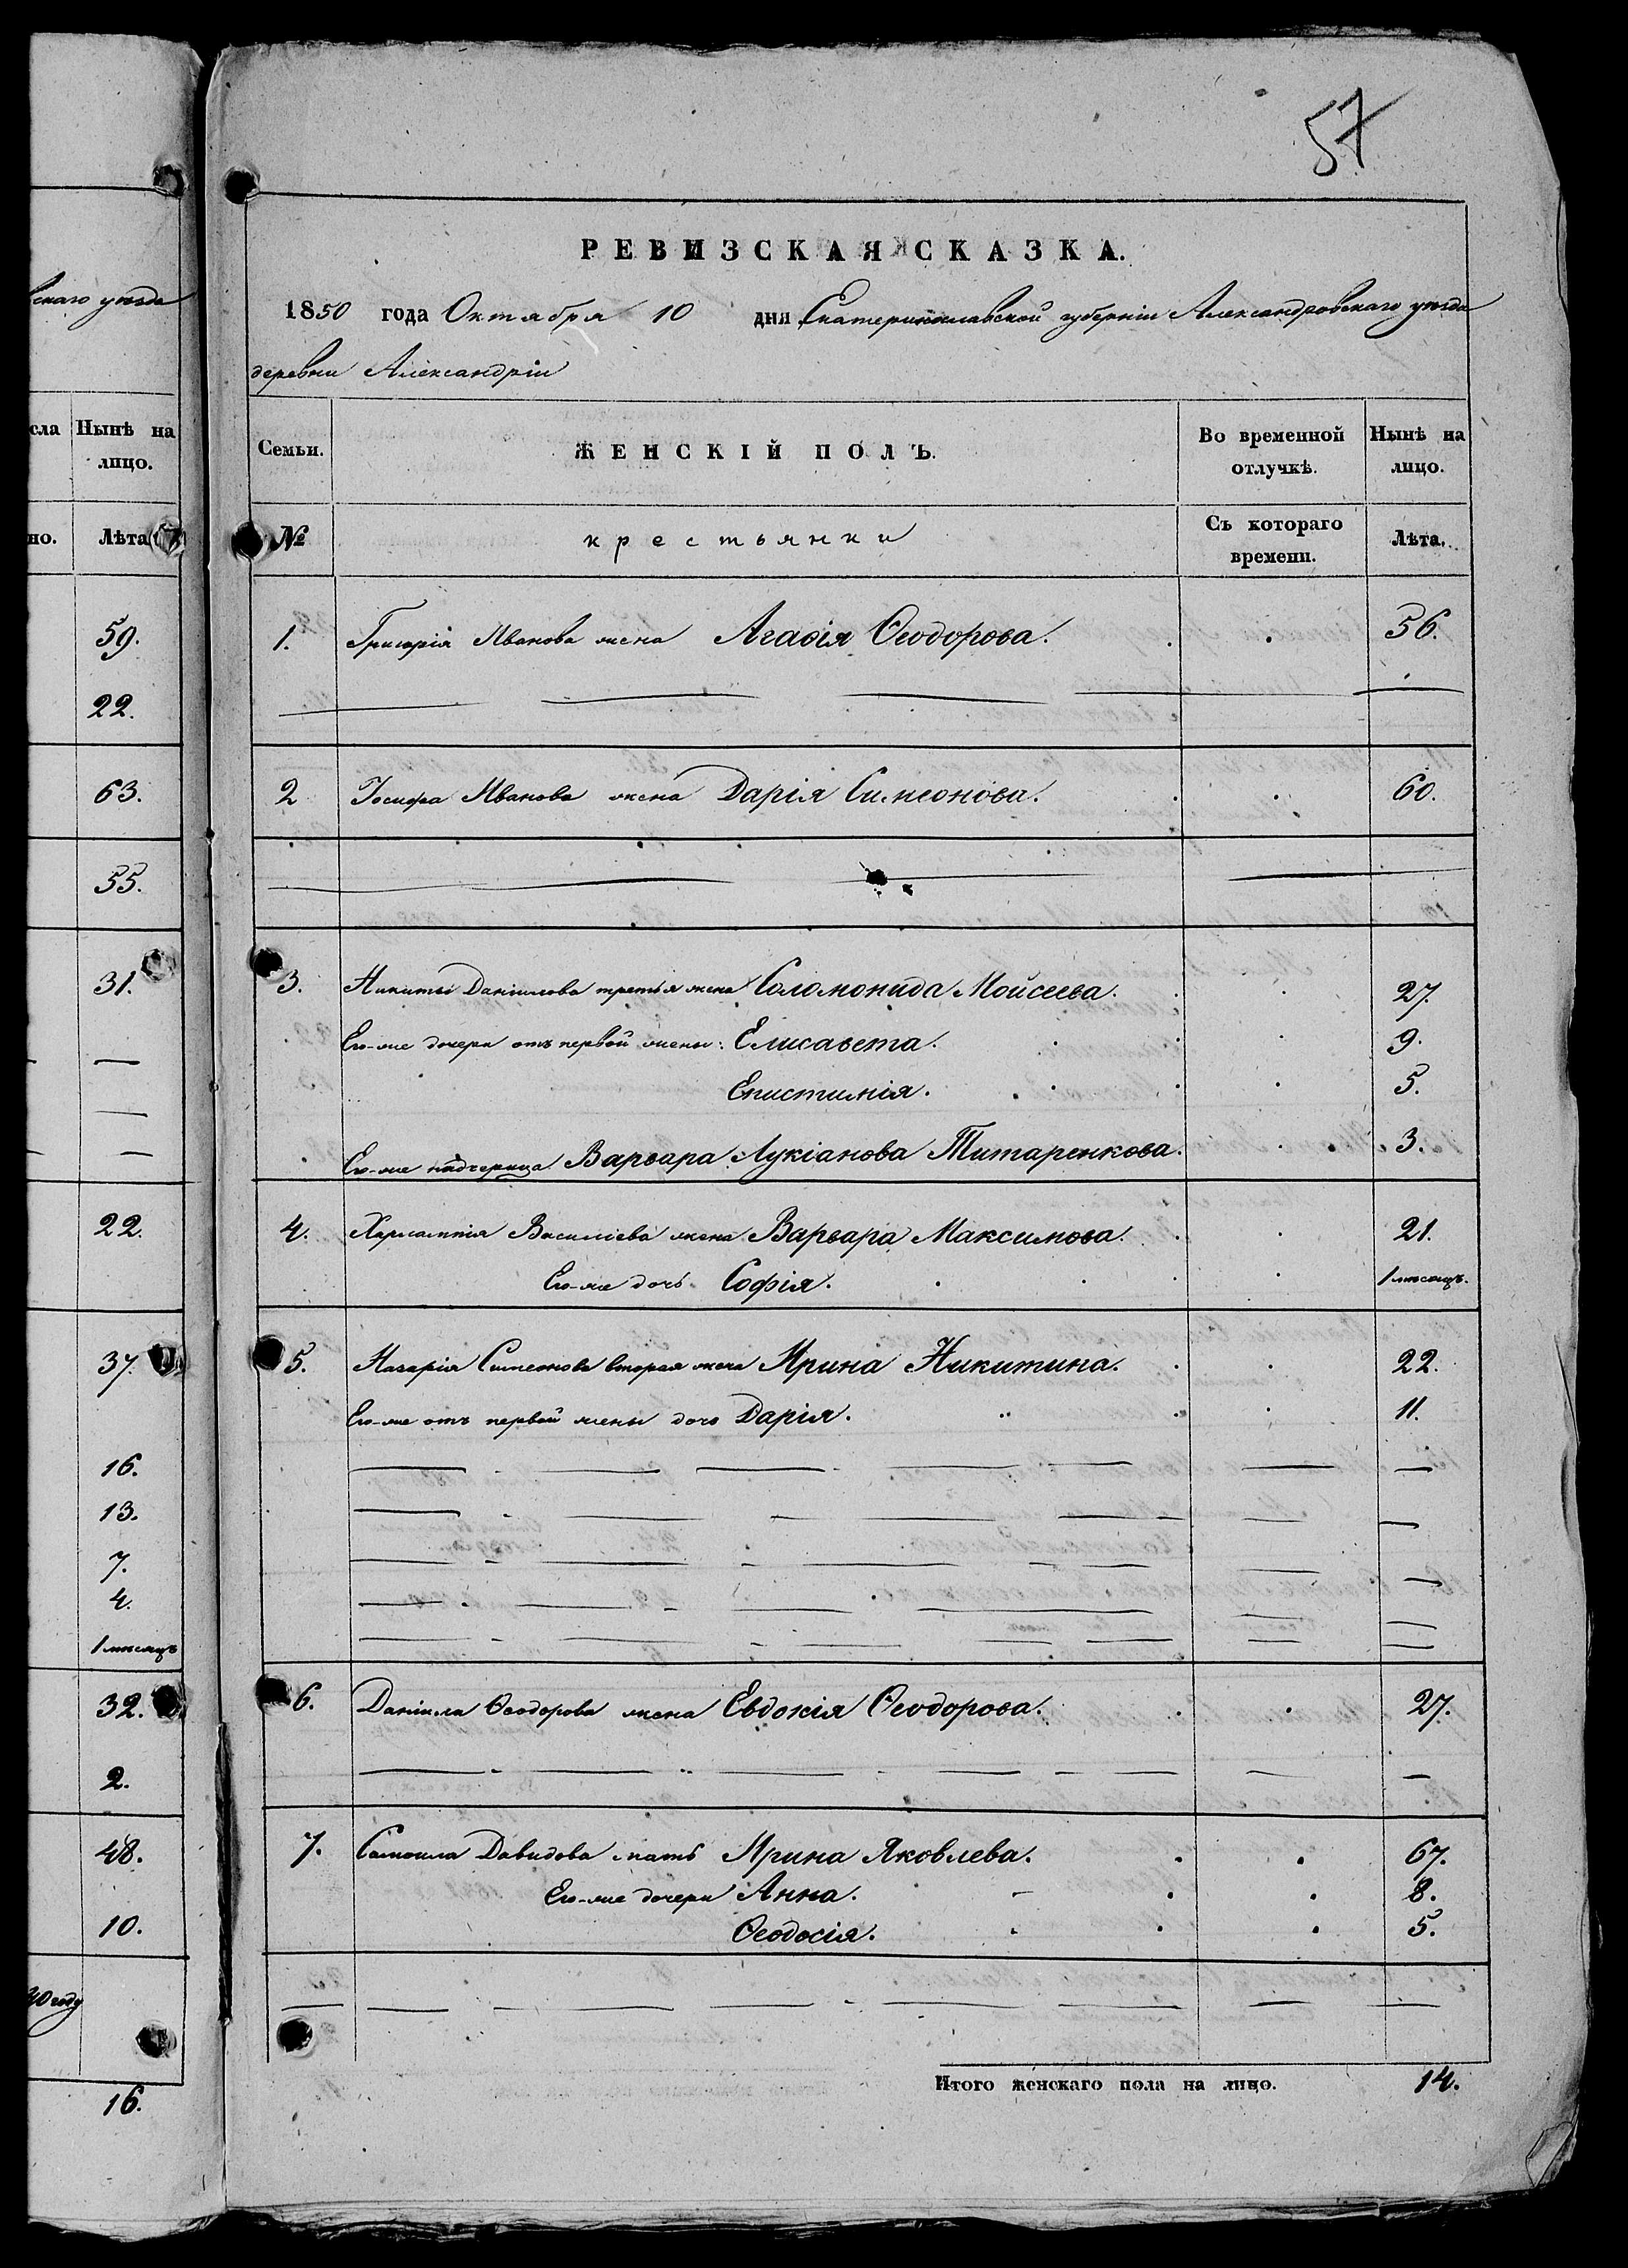 57
скаго уѣзда
сла
Нынѣ на
лицо.
но.
Лѣта
59.
22.
63.
55.
31.
22.
37.
16.
13.
7.
4.
1 мѣсяцъ
32.
2.
48.
10.
40 году
16.
РЕВИЗСКАЯ СКАЗКА.
1850 года Октября 10 дня Екатеринославской губерніи Александровскаго уѣзда
деревни Александріи
Семьи. ЖЕНСКІЙ ПОЛЪ. Во временной Нынѣ на
отлучкѣ. лицо.
№ крестьянки Съ котораго Лѣта.
времени.
1. Григорія Иванова жена Агафія Ѳеодорова. 56.
2 Іосифа Иванова жена Дарія Симеонова. 60.
3. Никиты Даніилова третья жена Соломонида Мойсеева. 27.
Его-же дочери отъ первой жены: Елисавета. 9.
Епистимія. 5.
Его-же падчерица Варвара Лукіанова Титаренкова. 3.
4. Харлампія Василіева жена Варвара Максимова. 21.
Его-же дочь Софія. 1 мѣсяцъ.
5. Назарія Симеонова вторая жена Ирина Никитина. 22.
Его-же отъ первой жены дочь Дарія. 11.
6. Даніила Ѳеодорова жена Евдокія Ѳеодорова. 27.
7. Самоила Давидова мать Ирина Яковлева. 67.
Его-же дочери Анна. 8.
Ѳеодосія. 5.
Итого женскаго пола на лицо. 14.